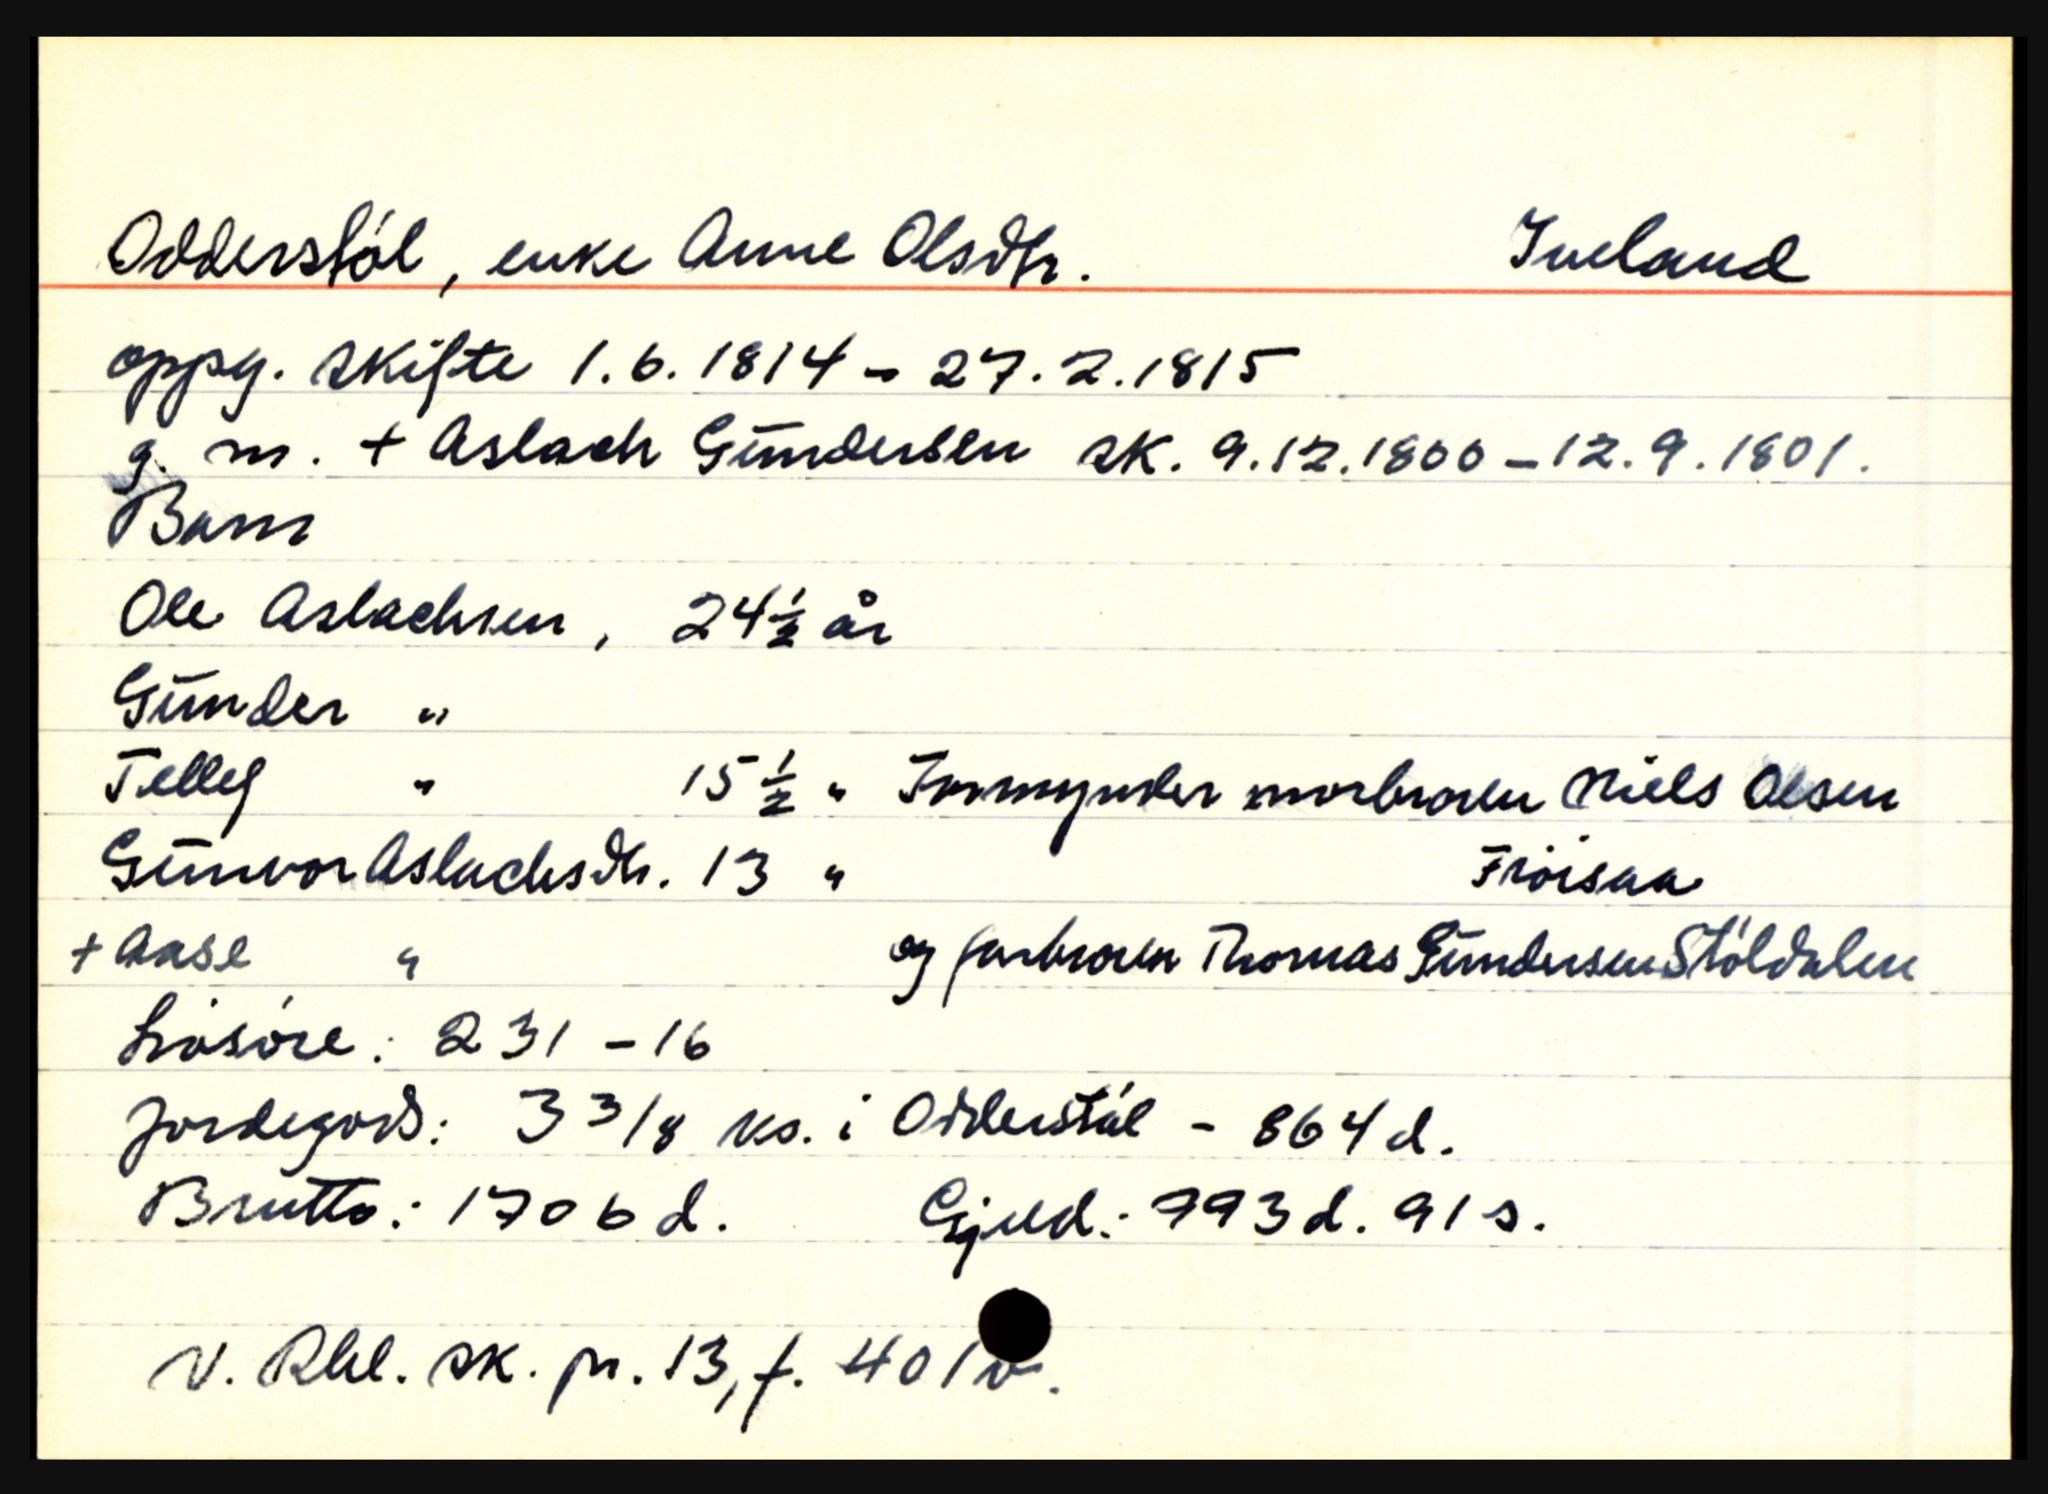 Odderstøl, enke Anne Olsdtr. Iveland
oppg. skifte 1.6.1814 - 27.2.1815
g. m. + Aslach Gundersen sk. 9.12.1800 - 12.9.1801.
Barn
Ole Aslachsen, 24 1/2 år
Gunder "
Tellef " 15 1/2 " Formynder morbroren Niels Olsen
Gunvor Aslachsdtr. 13 " Frøisaa
+ Aase " og farbroren Thomas Gundersen Støldalen
Løsøre: 231 - 16
Jordegods: 3 3/8 ks. i Odderstøl - 864 d.
Brutto: 1706 d. Gjeld: 993 d. 91 s.
V. Rbl. sk. pr. 13, f. 401 v.